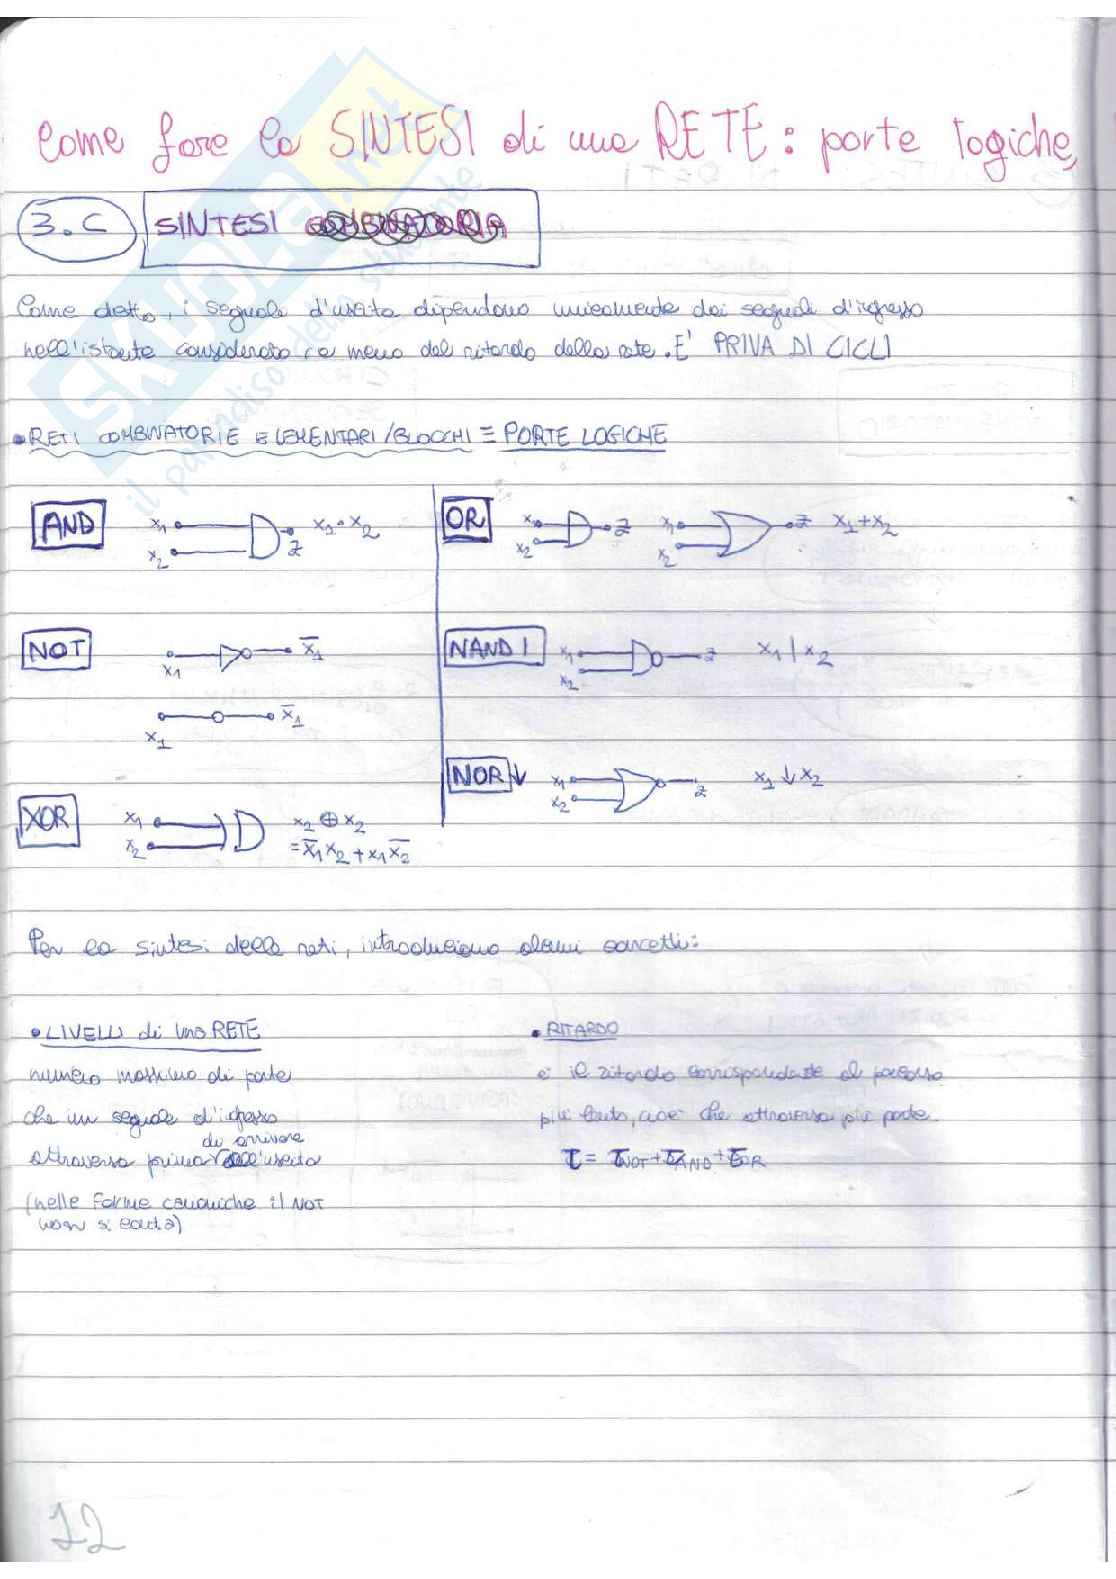 Come fare la SINTESI di una RETE: porte logiche,
3.C SINTESI COMBINATORIA
Come detto, i segnali d'uscita dipendono unicamente dai segnali d'ingresso
nell'istante considerato (a meno del ritardo della rete. E' PRIVA DI CICLI
• RETI COMBINATORIE ELEMENTARI/BLOCCHI ≡ PORTE LOGICHE
AND x1 x2 z x1 · x2
OR x1 x2 z x1 x2 z x1+x2
NOT x1 x̅1
x1 x̅1
NAND | x1 x2 z x1 | x2
NOR ↓ x1 x2 z x1 ↓ x2
XOR x1 x2 x2 ⊕ x2
= x̅1 x2 + x1 x̅2
Per la sintesi delle reti, introduciamo alcuni concetti:
• LIVELLI di una RETE
numero massimo di porte
che un segnale d'ingresso
di arrivare
attraversa prima all'uscita
(nelle forme canoniche il NOT
non si conta)
• RITARDO
è il ritardo corrispondente al percorso
più lento, cioè che attraversa più porte.
τ = τNOT + τAND + τOR
12
SKUOLA.net
il paradiso dello studente